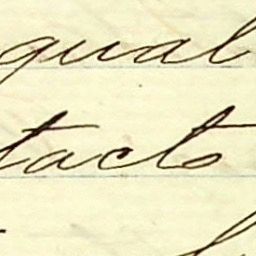 qual
tacts